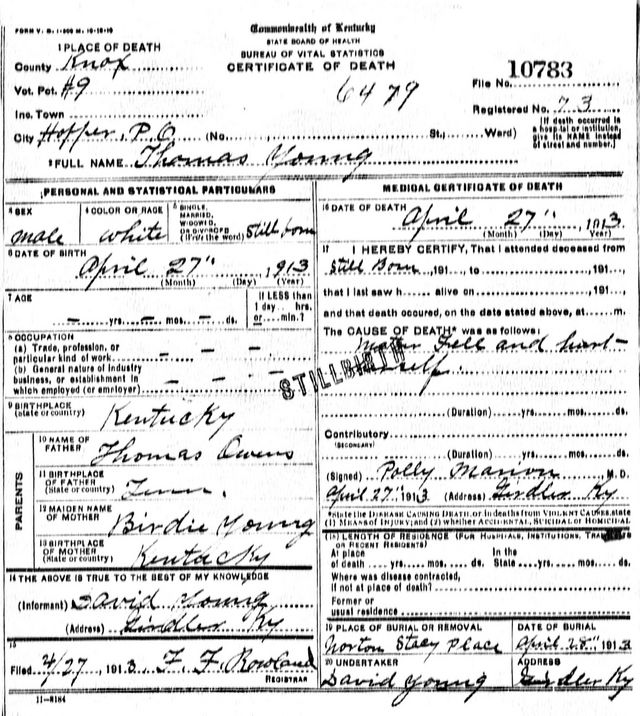 FORM V. S. 1-500 M. 10-10-10
Commonwealth of Kentucky
STATE BOARD OF HEALTH
BUREAU OF VITAL STATISTICS
CERTIFICATE OF DEATH
1 PLACE OF DEATH
County Knox
Vot. Pct. #9
Inc. Town
City Hopper, P.O (No. St., Ward)
6479
File No. 10783
Registered No. 73
[If death occurred in a hospital or institution, give its NAME instead of street and number.]
2 FULL NAME Thomas Young
PERSONAL AND STATISTICAL PARTICULARS
3 SEX
male
4 COLOR OR RACE
white
5 SINGLE,
MARRIED,
WIDOWED,
OR DIVORCED
(Write the word) Still born
6 DATE OF BIRTH
April 27", 1913
(Month) (Day) (Year)
7 AGE
- yrs. - mos. - ds.
If LESS than
1 day hrs.
or min.?
8 OCCUPATION
(a) Trade, profession, or
particular kind of work - - -
(b) General nature of industry
business, or establishment in
which employed (or employer) - - -
9 BIRTHPLACE
(State or country) Kentucky
PARENTS
10 NAME OF
FATHER Thomas Owens
11 BIRTHPLACE
OF FATHER
(State or country) Tenn.
12 MAIDEN NAME
OF MOTHER Birdie Young
13 BIRTHPLACE
OF MOTHER
(State or country) Kentucky
14 THE ABOVE IS TRUE TO THE BEST OF MY KNOWLEDGE
(Informant) David Young
(Address) Girdler Ky
15
Filed 4/27, 1913. F. F. Rowland
REGISTRAR
11-8184
MEDICAL CERTIFICATE OF DEATH
16 DATE OF DEATH
April 27", 1913
(Month) (Day) (Year)
17 I HEREBY CERTIFY, That I attended deceased from
Still Born, 191, to , 191,
that I last saw h alive on , 191,
and that death occured, on the date stated above, at m.
The CAUSE OF DEATH* was as follows:
Mother Fell and hurt
self.
STILLBIRTH
(Duration) yrs. mos. ds.
Contributory
(SECONDARY)
(Duration) yrs. mos. ds.
(Signed) Polly Marion M. D.
April 27", 1913 (Address) Girdler Ky
*State the DISEASE CAUSING DEATH, or in deaths from VIOLENT CAUSES, state
(1) MEANS OF INJURY; and (2) whether ACCIDENTAL, SUICIDAL or HOMICIDAL
18 LENGTH OF RESIDENCE (FOR HOSPITALS, INSTITUTIONS,
OR RECENT RESIDENTS)
At place In the
of death yrs. mos. ds. State yrs. mos. ds.
Where was disease contracted,
if not at place of death?
Former or
usual residence
19 PLACE OF BURIAL OR REMOVAL
Norton Stacy Place
DATE OF BURIAL
April 28", 1913
20 UNDERTAKER
David Young
ADDRESS
Girdler Ky